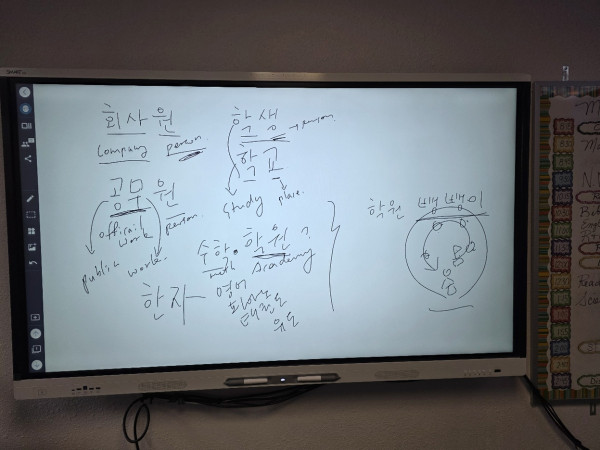 회사원
company person.
공무원
official work person.
public work.
학생
→ person.
학교
study place.
수학. 학원?
math Academy
한자 - 영어
피아노
태권도
유도
학원 뺑뺑이